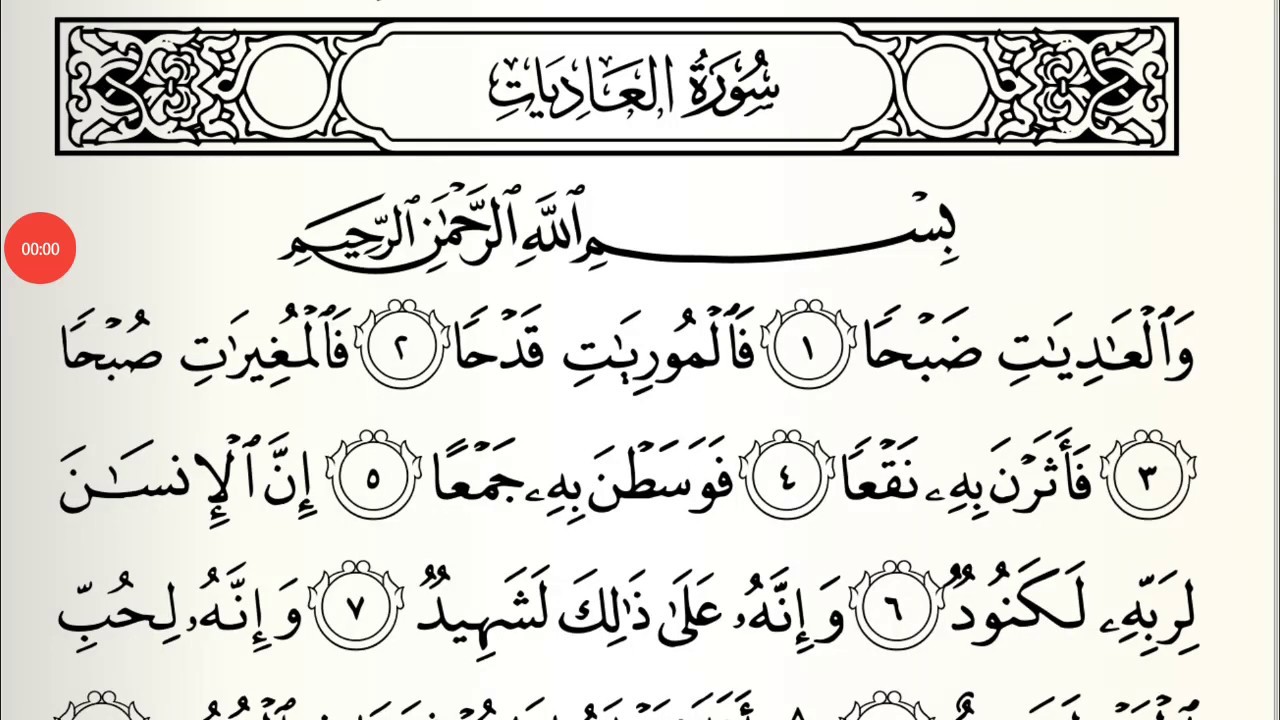 سُورَةُ العَادِيَاتِ
بِسْمِ ٱللَّهِ ٱلرَّحْمَٰنِ ٱلرَّحِيمِ
00:00
وَٱلْعَٰدِيَٰتِ ضَبْحًا ١ فَٱلْمُورِيَٰتِ قَدْحًا ٢ فَٱلْمُغِيرَٰتِ صُبْحًا
٣ فَأَثَرْنَ بِهِۦ نَقْعًا ٤ فَوَسَطْنَ بِهِۦ جَمْعًا ٥ إِنَّ ٱلْإِنسَٰنَ
لِرَبِّهِۦ لَكَنُودٌ ٦ وَإِنَّهُۥ عَلَىٰ ذَٰلِكَ لَشَهِيدٌ ٧ وَإِنَّهُۥ لِحُبِّ